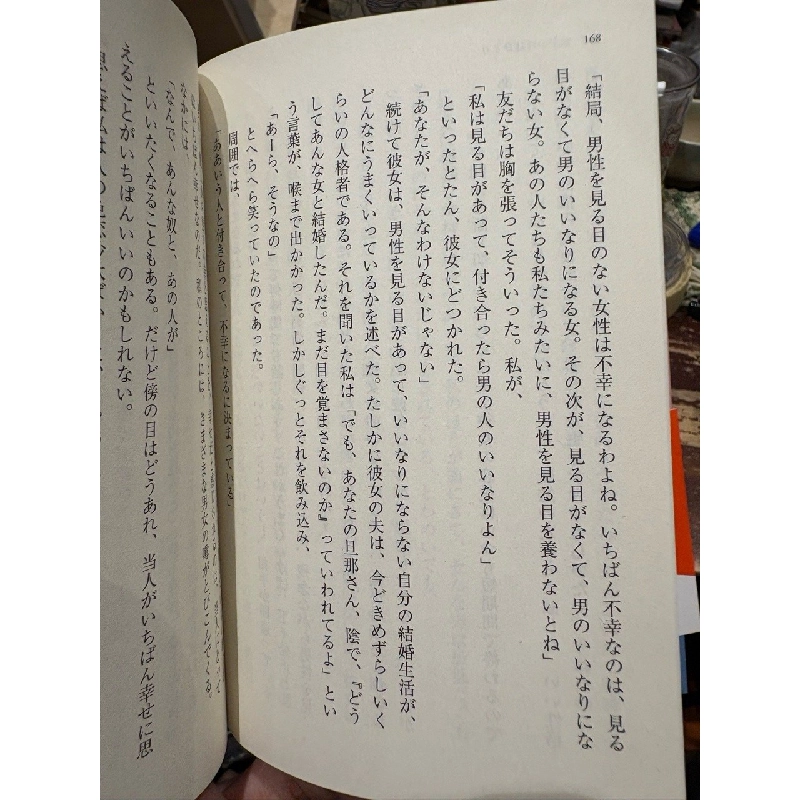 168
「結局、男性を見る目のない女性は不幸になるわよね。いちばん不幸なのは、見る
目がなくて男のいいなりになる女。その次が、見る目がなくて、男のいいなりにな
らない女。あの人たちも私たちみたいに、男性を見る目を養わないとね」
友だちは胸を張ってそういった。私が、
「私は見る目があって、付き合ったら男の人のいいなりよん」
といったとたん、彼女にどつかれた。
「あなたが、そんなわけないじゃない」
続けて彼女は、男性を見る目があって、いいなりにならない自分の結婚生活が、
どんなにうまくいっているかを述べた。たしかに彼女の夫は、今どきめずらしいく
らいの人格者である。それを聞いた私は「でも、あなたの旦那さん、陰で、『どう
してあんな女と結婚したんだ。まだ目を覚まさないのか』っていわれてるよ」とい
う言葉が、喉まで出かかった。しかしぐっとそれを飲み込み、
「あーら、そうなの」
とへらへら笑っていたのであった。
周囲では、
「ああいう人と付き合って、不幸になるに決まっている」
さまざまな男女の噂がとびこんでくる。
なかには、
「なんで、あんな奴と、あの人が」
といいたくなることもある。だけど傍の目はどうあれ、当人がいちばん幸せに思
えることがいちばんいいのかもしれない。